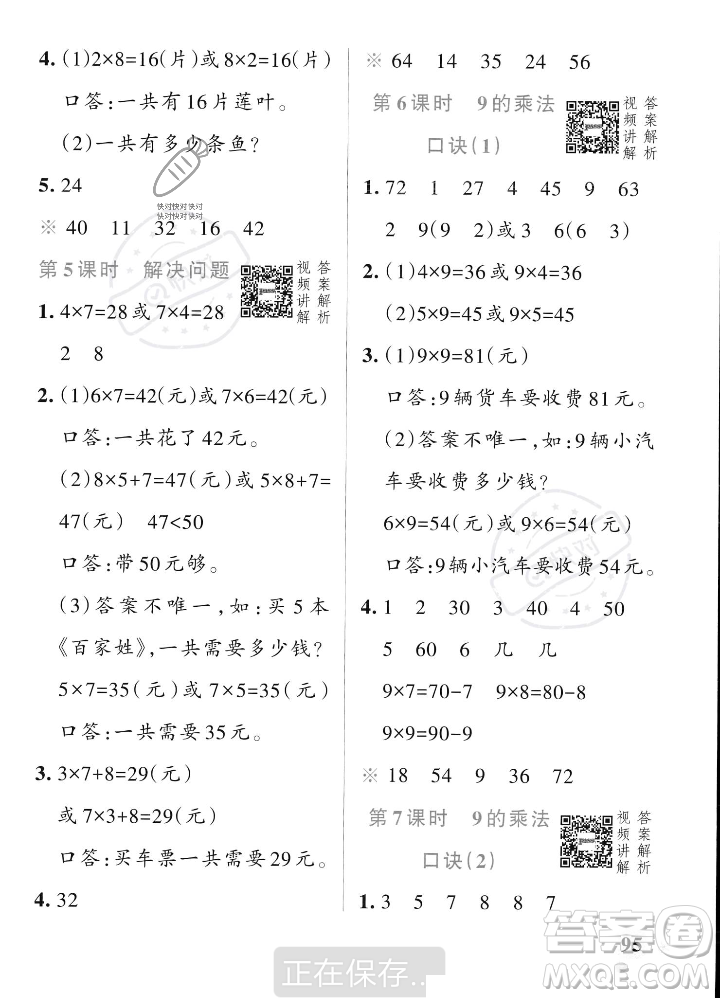 4. (1)2×8=16(片)或8×2=16(片)
口答:一共有16片莲叶。
(2)一共有多少条鱼?
5. 24
※ 40 11 32 16 42
第5课时 解决问题
视频讲解
答案解析
1. 4×7=28或7×4=28
2 8
2. (1)6×7=42(元)或7×6=42(元)
口答:一共花了42元。
(2)8×5+7=47(元)或5×8+7=
47(元) 47<50
口答:带50元够。
(3)答案不唯一,如:买5本
《百家姓》,一共需要多少钱?
5×7=35(元)或7×5=35(元)
口答:一共需要35元。
3. 3×7+8=29(元)
或7×3+8=29(元)
口答:买车票一共要29元。
4. 32
※ 64 14 35 24 56
第6课时 9的乘法
口诀(1)
视频讲解
答案解析
1. 72 1 27 4 45 9 63
2 9(6 3)或3 6(6 3)
2. (1)4×9=36或9×4=36
(2)5×9=45或9×5=45
3. (1)9×9=81(元)
口答:9辆货车要收费81元。
(2)答案不唯一,如:9辆小汽
车要收费多少钱?
6×9=54(元)或9×6=54(元)
口答:9辆小汽车要收费54元。
4. 1 2 30 3 4 50
5 60 6 几 几
9×7=70-7 9×8=80-8
9×9=90-9
※ 18 54 9 36 72
第7课时 9的乘法
口诀(2)
视频讲解
答案解析
1. 3 5 7 8 8 7
95
快对快对快对
快对快对快对
快对
快对
正在保存..
答案圈
MXQE.COM